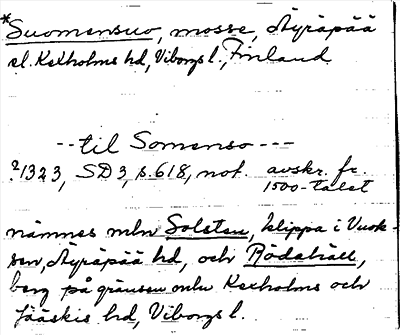 *Suomensuo, mosse, Äyräpää
el. Kexholms hd, Viborgs l., Finland
--til Somenso---
?1323, SD 3, s. 618, not. avskr. fr.
1500-talet
nämnes mln Solsten, klippa i Vuok-
sen, Äyräpää hd, och Rödahäll,
berg på gränsen mln Kexholms och
Jääskis hd, Viborgs l.